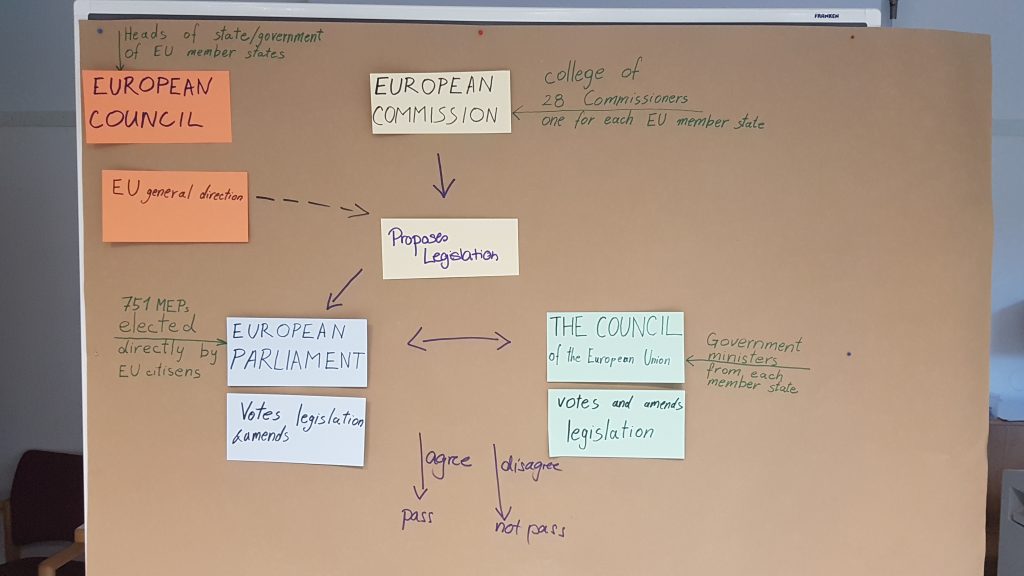 FRANKEN
Heads of state/government
of EU member states
EUROPEAN
COUNCIL
EUROPEAN
COMMISSION
college of
28 Commissioners
one for each EU member state
EU general direction
Proposes
Legislation
751 MEPs
elected
directly by
EU citisens
EUROPEAN
PARLIAMENT
Votes legislation
&amends
THE COUNCIL
of the European Union
votes and amends
legislation
Government
ministers
from each
member state
agree
pass
disagree
not pass